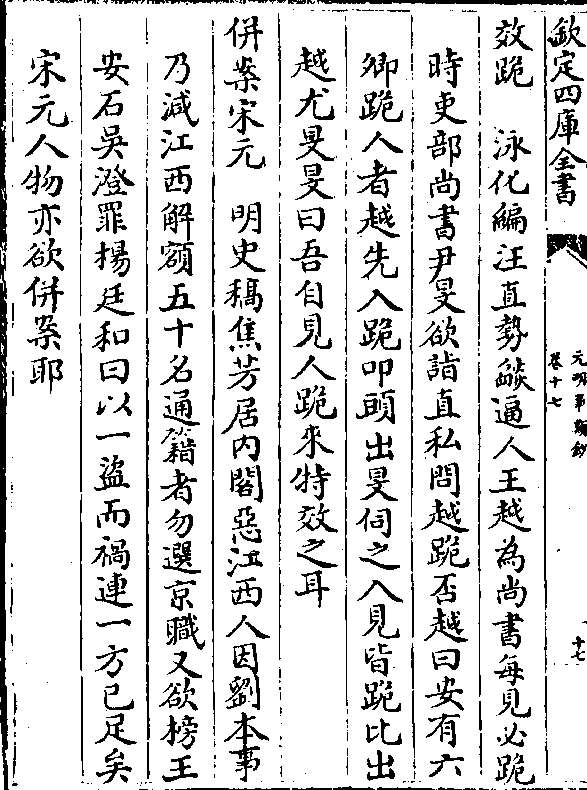 欽定四庫全書
元明事類鈔
卷十七
十七
效跪　泳化編汪直勢燄逼人王越為尚書每見必跪
時吏部尚書尹旻欲詣直私問越跪否越曰安有六
卿跪人者越先入跪叩頭出旻伺之入見皆跪比出
越尤旻旻曰吾自見人跪來特效之耳
併案宋元　明史稿焦芳居內閣惡江西人因劉本事
乃減江西解額五十名通籍者勿選京職又欲榜王
安石吳澄罪楊廷和曰以一盜而禍連一方已足矣
宋元人物亦欲併案耶